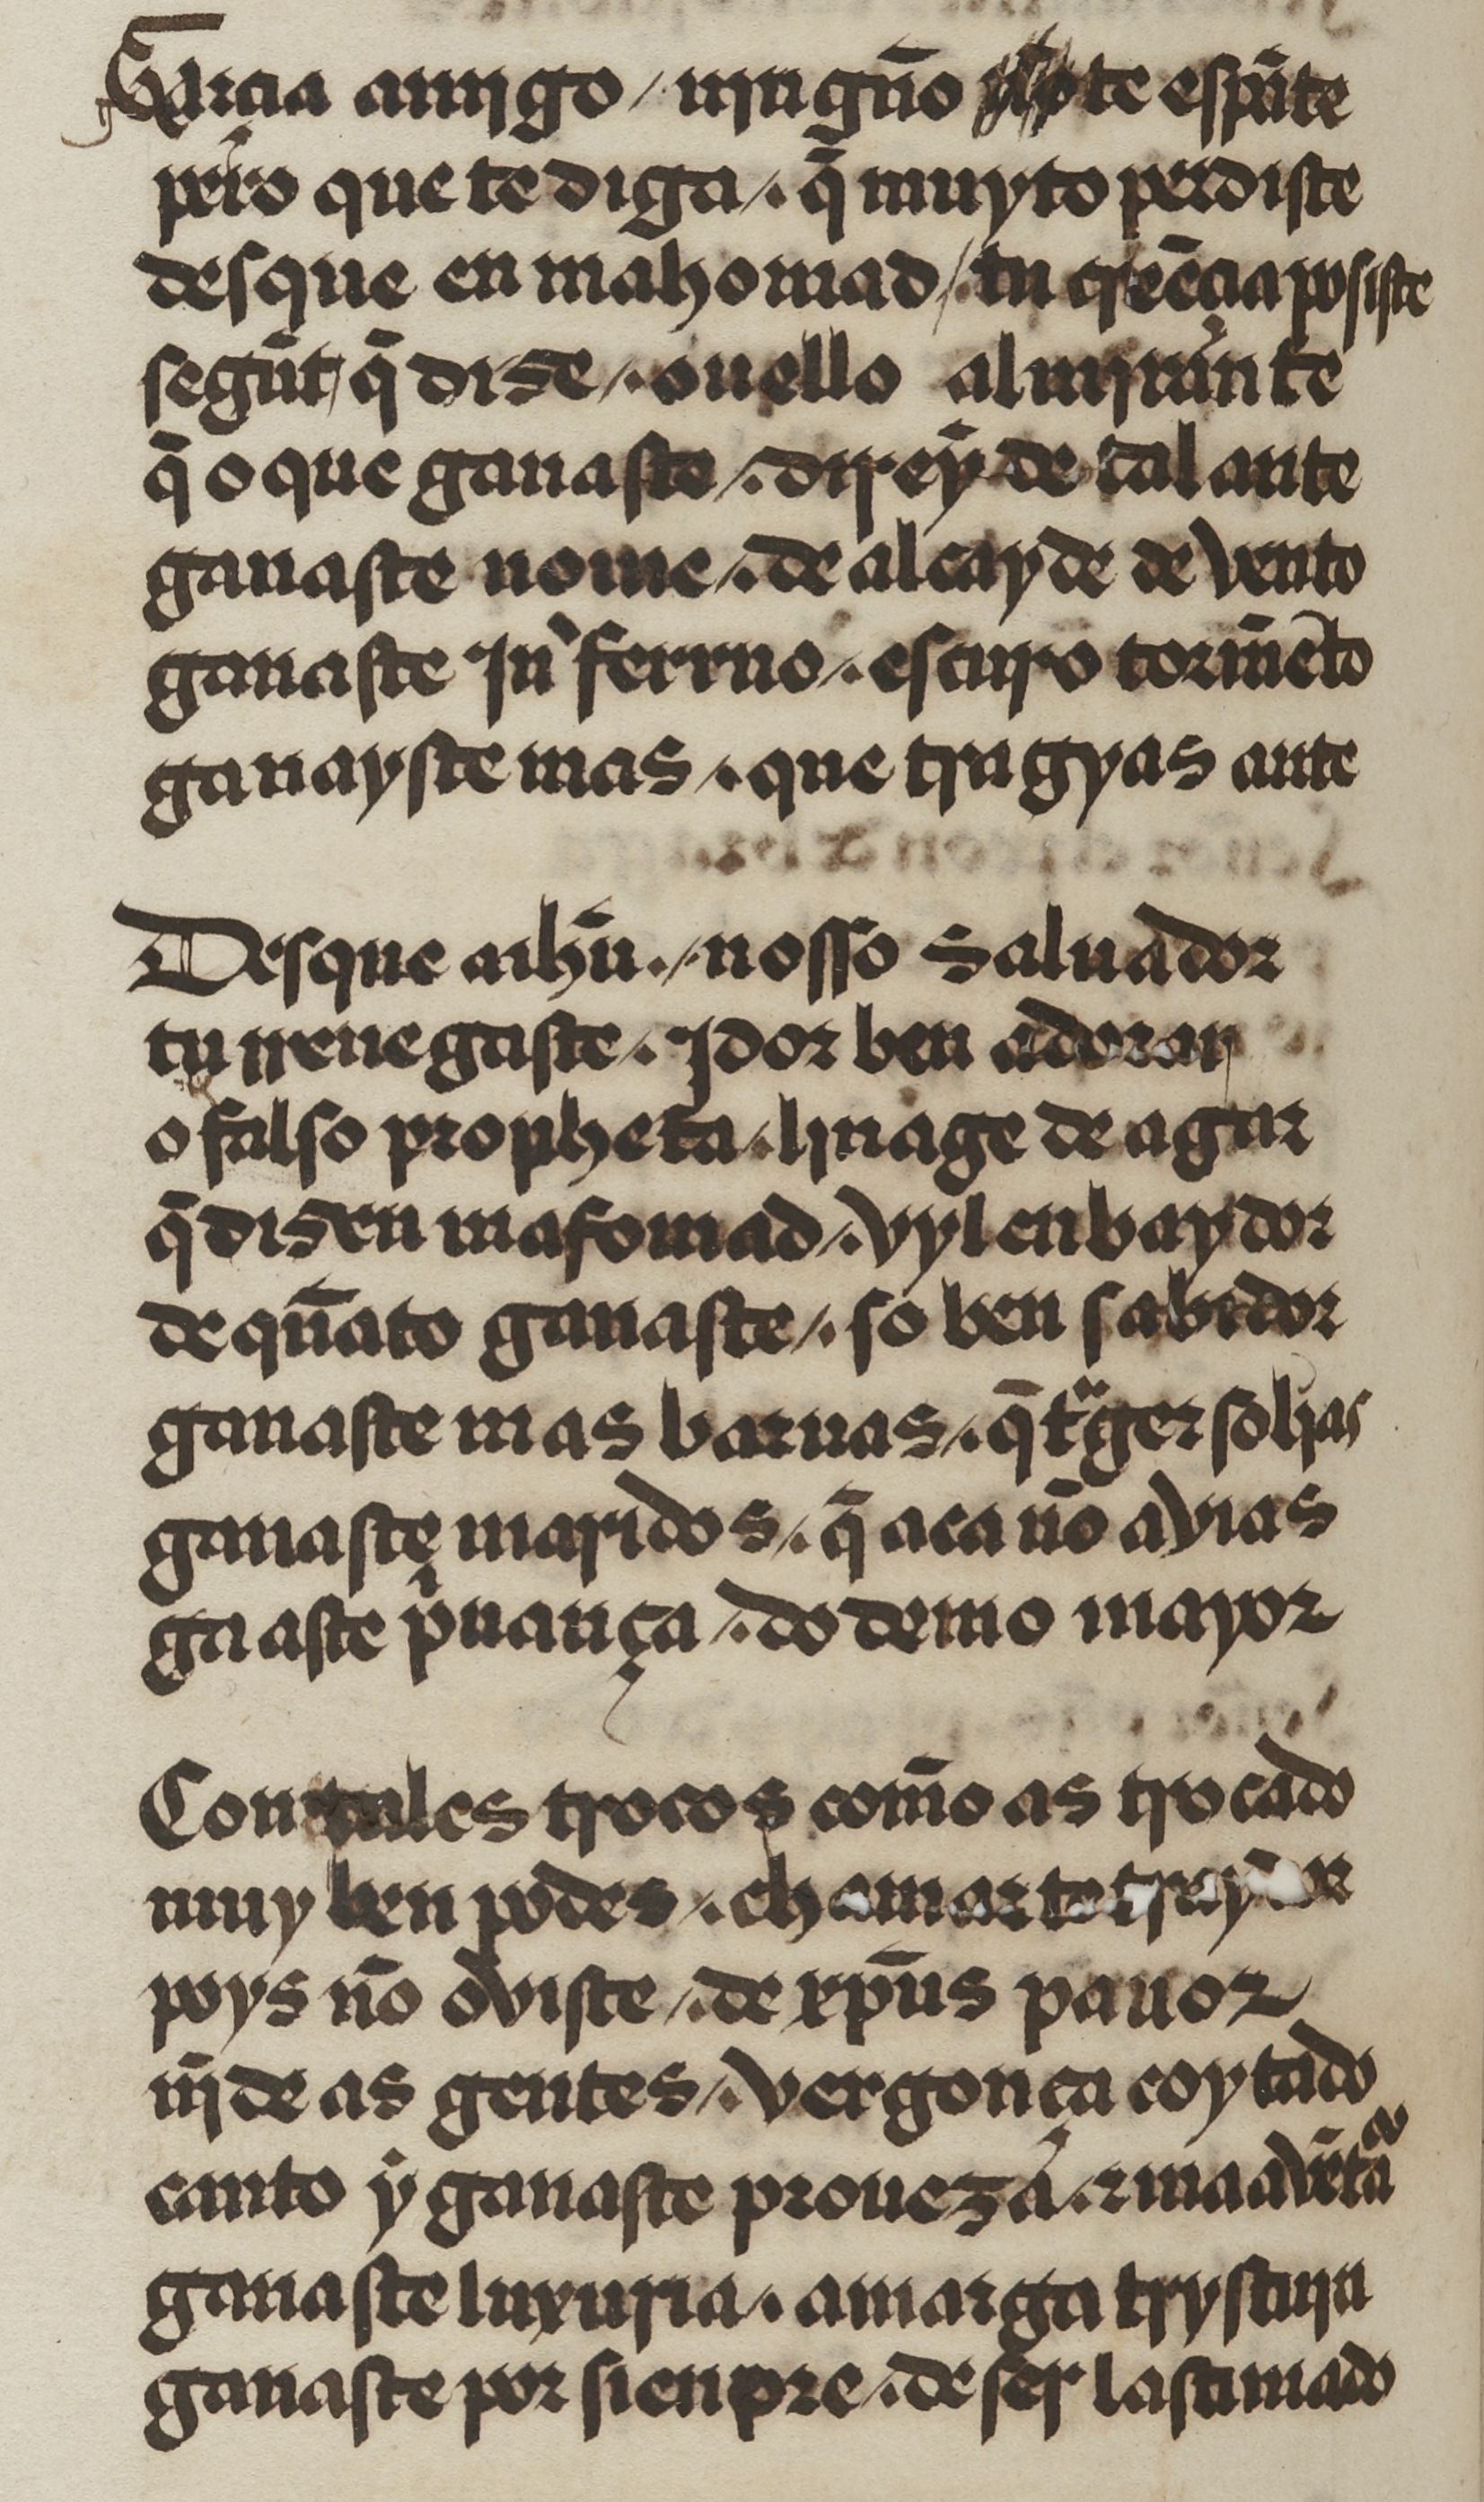 Garcia amigo / njnguño te espãte
pero que te diga /. q̃ muyto perdiste
desque en mahomad /. tu creẽcia posiste
segũt q̃ dise /. o uello almjrante
q̃ o que ganaste /. direy de talante
ganaste nome /. de alcayde de vento
ganaste Inferrno /. escuro tormẽto
ganayste mas /. que tragyas ante

Desque a ihũ ./ nosso saluador
tu rrenegaste /. Idor ben adorar
o falso propheta /. linage de agar
q̃ disen mafomad /. vyl enbaydor
de quãato ganaste /. so ben sabidor
ganaste mas baruas /. q̃ trager solias
ganaste maridos /. q̃ aca nõ avias
gaaste priuança /. do demo mayor

Con tales trocos com̃o as trocado
muy ben podes /. chamarte traydor
poys nõ oviste /. de xp̃us pauor
nj̃ de as gentes /. vergonça coytado
canto y ganaste proueza /. z maa vẽtura
ganaste luxuria /. amarga trystura
ganaste por sienpre /. de ser lastimado